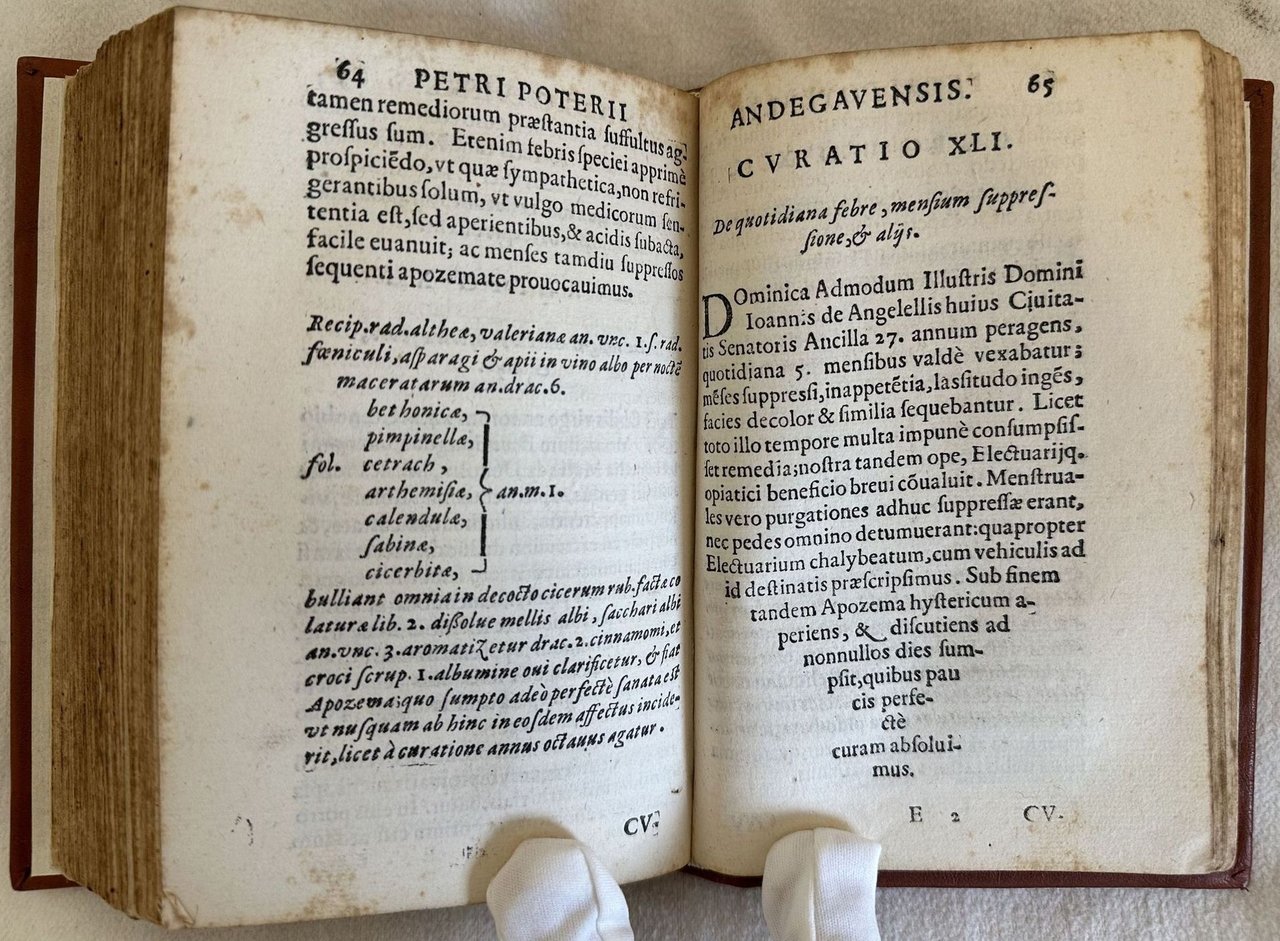 64 PETRI POTERII
tamen remediorum præſtantia ſuffultus ag-
greſſus ſum. Etenim febris ſpeciei apprimè
proſpiciẽdo, vt quæ ſympathetica, non refri-
gerantibus ſolum, vt vulgo medicorum ſen-
tentia eſt, ſed aperientibus, & acidis ſubacta,
facile euanuit; ac menſes tamdiu ſuppreſſos
ſequenti apozemate prouocauimus.
Recip. rad. altheæ, valerianæ an. vnc. 1. ſ. rad.
fœniculi, aſparagi & apii in vino albo per noctẽ
maceratarum an. drac. 6.
bethonicæ,
pimpinellæ,
fol. cetrach,
arthemiſiæ, an. m. 1.
calendulæ,
ſabinæ,
cicerbitæ,
bulliant omnia in decocto cicerum rub. factæ co
laturæ lib. 2. diſſolue mellis albi, ſacchari albi
an. vnc. 3. aromatizetur drac. 2. cinnamomi, et
croci ſcrup. 1. albumine oui clarificetur, & fiat
Apozema; quo ſumpto adeò perfectè ſanata eſt
vt nuſquam ab hinc in eoſdem affectus incide-
rit, licet à curatione annus octauus agatur.
CV-
ANDEGAVENSIS. 65
CVRATIO XLI.
De quotidiana febre, menſium ſuppreſ-
ſione, & alijs.
DOminica Admodum Illuſtris Domini
Ioannis de Angelellis huius Ciuita-
tis Senatoris Ancilla 27. annum peragens,
quotidiana 5. menſibus valdè vexabatur;
mẽſes ſuppreſſi, inappetẽtia, laſſitudo ingẽs,
facies decolor & ſimilia ſequebantur. Licet
toto illo tempore multa impunè conſumpſiſ-
ſet remedia; noſtra tandem ope, Electuarijq.
opiatici beneficio breui cõualuit. Menſtrua-
les vero purgationes adhuc ſuppreſſæ erant,
nec pedes omnino detumuerant: quapropter
Electuarium chalybeatum, cum vehiculis ad
id deſtinatis præſcripſimus. Sub finem
tandem Apozema hyſtericum a-
periens, & diſcutiens ad
nonnullos dies ſum-
pſit, quibus pau
cis perfe-
ctè
curam abſolui-
mus.
E 2 CV-